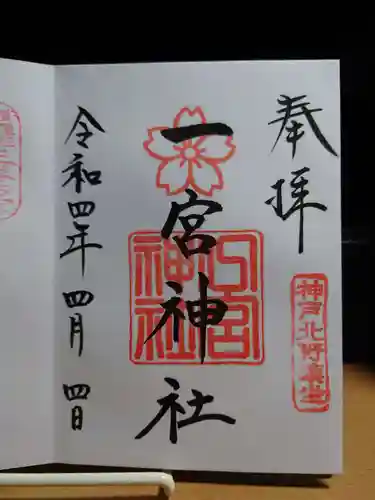 奉拝
神戸北野鎮坐
一宮神社
一宮神社
令和四年 四月 四日